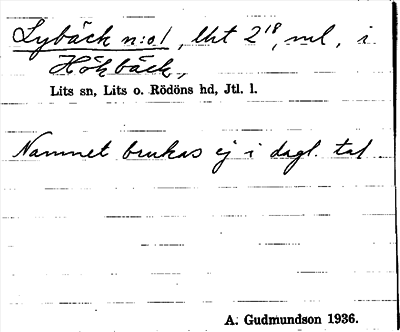 Lybäck n:o 1, lht 2¹⁸, ml, i
Hökbäck,
Lits sn, Lits o. Rödöns hd, Jtl. l.
Namnet brukas ej i dagl. tal
A. Gudmundson 1936.